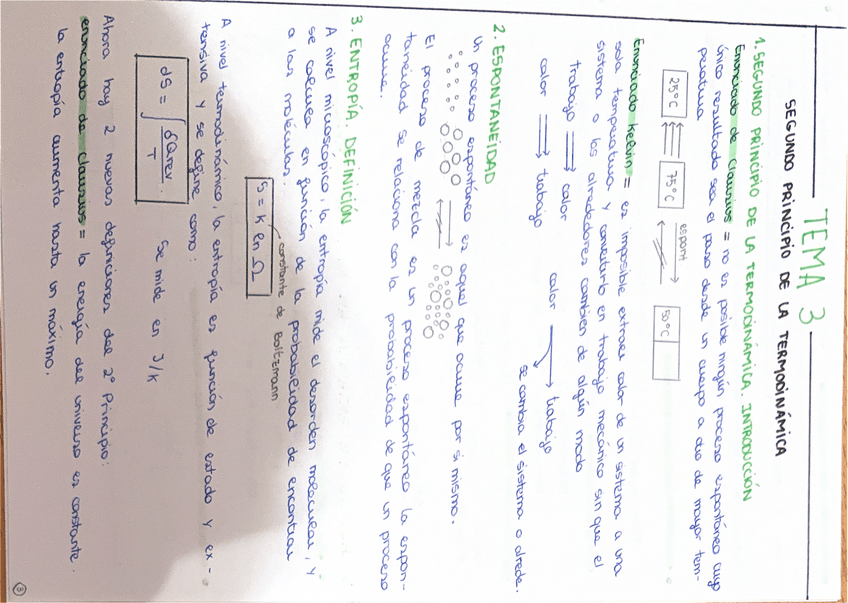 TEMA 3
SEGUNDO PRINCIPIO DE LA TERMODINÁMICA
1. SEGUNDO PRINCIPIO DE LA TERMODINÁMICA. INTRODUCCIÓN
Enunciado de Clausius = no es posible ningún proceso espontáneo cuyo
único resultado sea el paso desde un cuerpo a otro de mayor tem-
peratura
25°C 75°C espont 50°C
Enunciado Kelvin = es imposible extraer calor de un sistema a una
sola temperatura y convertirlo en trabajo mecánico sin que el
sistema o los alrededores cambien de algún modo
trabajo ⟹ calor
calor ⟹ trabajo calor ⟶ trabajo
se cambia el sistema o alrede.
2. ESPONTANEIDAD
Un proceso espontáneo es aquel que ocurre por si mismo.
El proceso de mezcla es un proceso espontáneo la espon-
taneidad se relaciona con la probabilidad de que un proceso
ocurre.
3. ENTROPÍA. DEFINICIÓN
A nivel microscópico, la entropía mide el desorden molecular, y
se calcula en función de la probabilidad de encontrar
a las moléculas.
constante de Boltzmann
S = K ln Ω
A nivel termodinámico, la entropía es función de estado y ex-
tensiva y se define como:
dS = ∫ δQrev / T Se mide en J/K
Ahora hay 2 nuevas definiciones del 2º Principio:
enunciado de Clausius = la energía del universo es constante.
la entropía aumenta hasta un máximo.
3